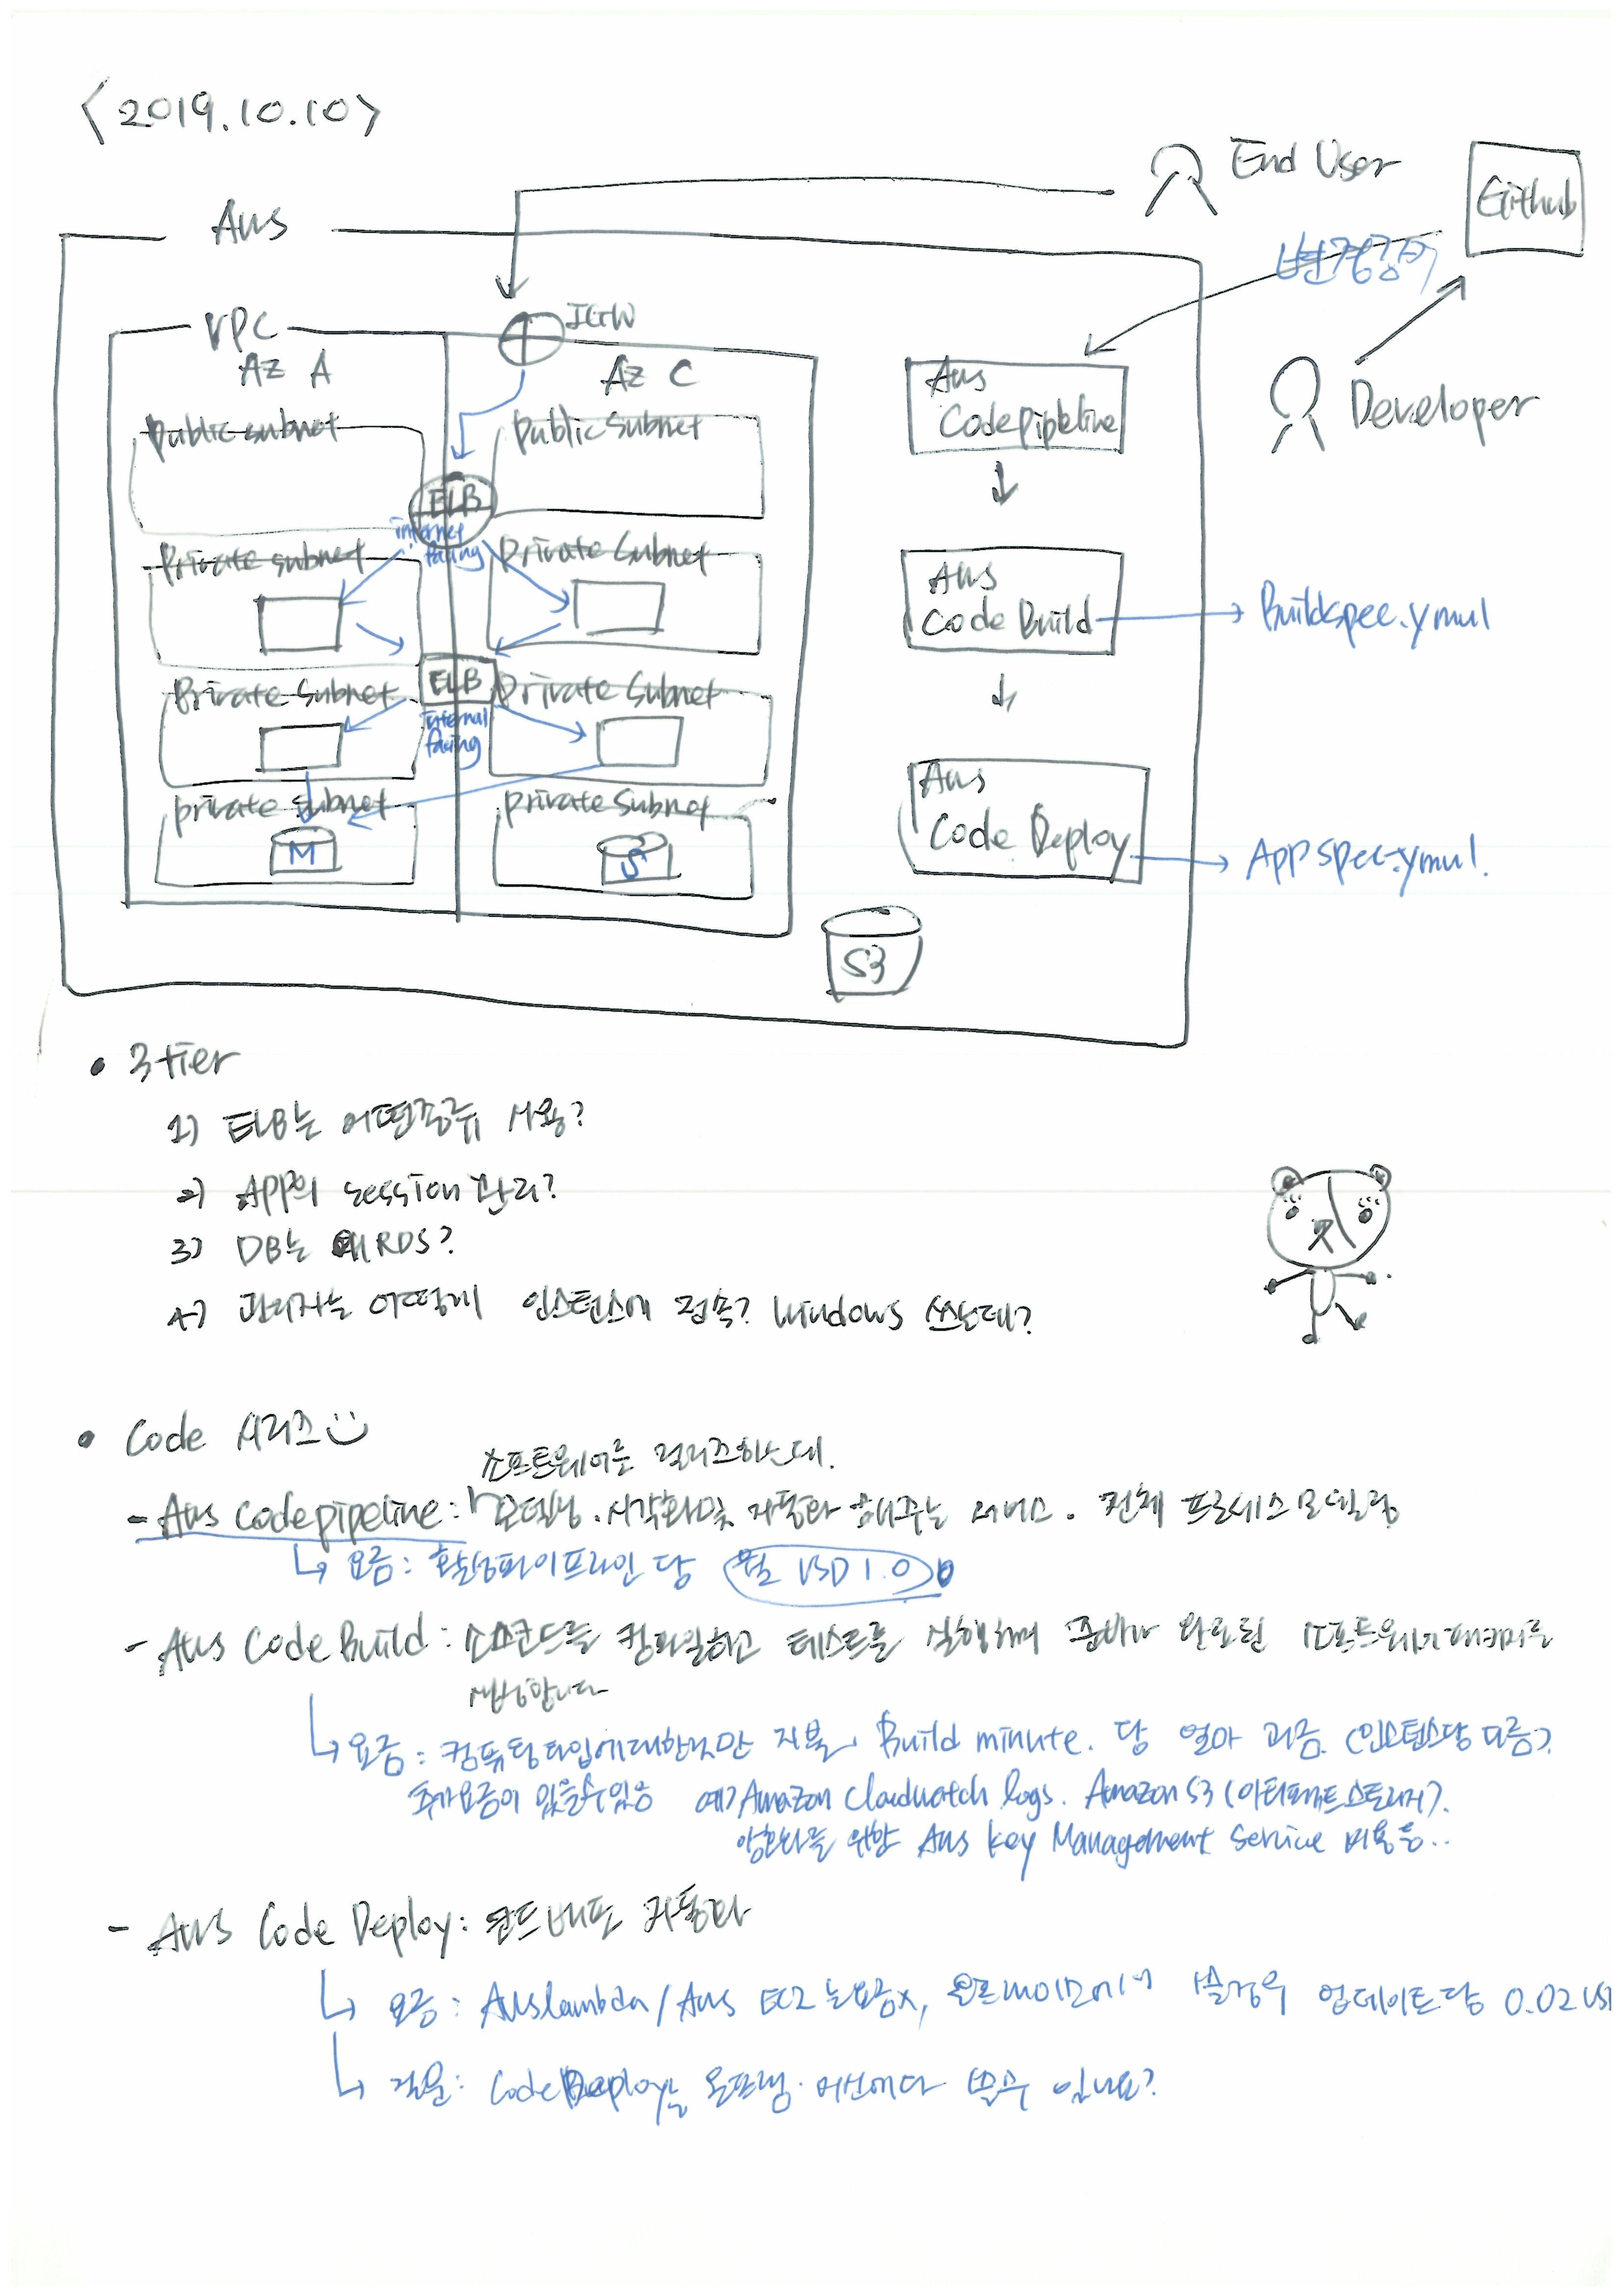 <2019.10.10>
End User
Github
Aws
변경감지
IGW
VPC
Az A
Az C
Aws
Codepipeline
Developer
Public subnet
Public Subnet
ELB
internet
facing
Private subnet
Private Subnet
Aws
Code Build
Buildspec.ymul
ELB
Private Subnet
Private Subnet
internal
facing
Aws
Code Deploy
Appspec.ymul.
private subnet
private subnet
M
S
S3
• 3tier
1) ELB는 어떤종류 사용?
2) APP의 session 관리?
3) DB는 왜 RDS?
4) 관리자는 어떻게 인스턴스에 접속? Windows 쓰는데?
• Code 시리즈
소프트웨어를 릴리즈하는데.
- Aws Codepipeline: 모델링.시각화및 자동화 해주는 서비스. 전체 프로세스 모델링
↳ 요금: 활성파이프라인 당 월 USD 1.0
- Aws Code Build: 소스코드를 컴파일하고 테스트를 실행하며 준비가 완료된 소프트웨어패키지를
생성합니다
↳ 요금: 컴퓨팅타입에대한것만 지불. Build minute. 당 얼마 과금. (인스턴스당 다름).
추가요금이 있을수있음 예) Amazon Cloudwatch logs. Amazon S3 (아티팩트스토리지).
암호화를 위한 Aws Key Management Service 비용등..
- Aws Code Deploy: 코드배포 자동화
↳ 요금: Aws lambda/Aws EC2 는요금x, 온프레미스에서 쓸경우 업데이트당 0.02 US
↳ 질문: CodeDeploy는 온프렘. 어신에다 쓸수 있나요?